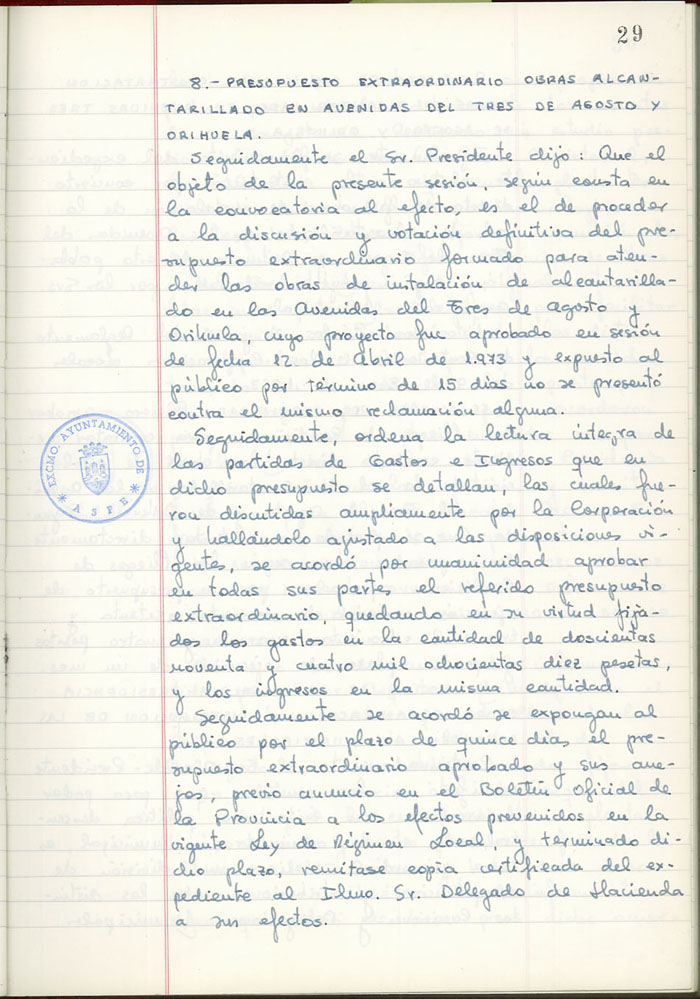 29
8.- PRESUPUESTO EXTRAORDINARIO OBRAS ALCAN-
TARILLADO EN AVENIDAS DEL TRES DE AGOSTO Y
ORIHUELA.
Seguidamente el Sr. Presidente dijo: Que el
objeto de la presente sesión, según consta en
la convocatoria al efecto, es el de proceder
a la discusión y votación definitiva del pre-
supuesto extraordinario formado para aten-
der las obras de instalación de alcantarilla-
do en las Avenidas del Tres de Agosto y
Orihuela, cuyo proyecto fue aprobado en sesión
de fecha 12 de Abril de 1.973 y expuesto al
público por término de 15 días no se presentó
contra el mismo reclamación alguna.
Seguidamente, ordena la lectura íntegra de
las partidas de Gastos e Ingresos que en
dicho presupuesto se detallan, las cuales fue-
ron discutidas ampliamente por la Corporación
y hallándolo ajustado a las disposiciones vi-
gentes, se acordó por unanimidad aprobar
en todas sus partes el referido presupuesto
extraordinario, quedando en su virtud fija-
dos los gastos en la cantidad de doscientas
noventa y cuatro mil ochocientas diez pesetas,
y los ingresos en la misma cantidad.
Seguidamente se acordó se expongan al
público por el plazo de quince días, el pre-
supuesto extraordinario aprobado y sus ane-
jos, previo anuncio en el Boletín Oficial de
la Provincia a los efectos prevenidos, en la
vigente Ley de Régimen Local, y terminado di-
cho plazo, remítase copia certificada del ex-
pediente al Ilmo. Sr. Delegado de Hacienda
a sus efectos.
EXCMO. AYUNTAMIENTO DE
ASPE